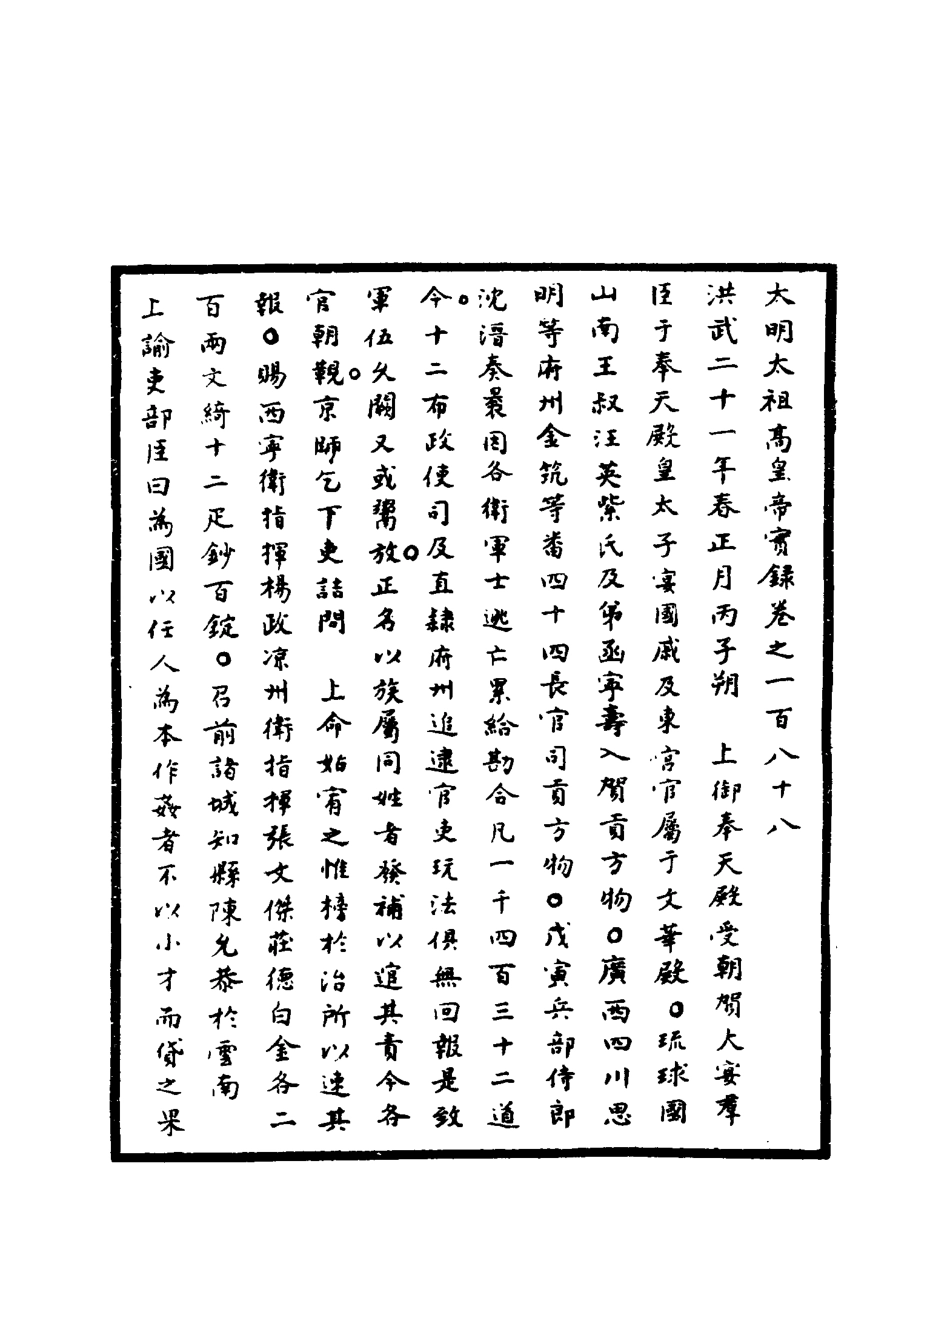 太明太祖高皇帝實錄卷之一百八十八
洪武二十一年春正月丙子朔　上御奉天殿受朝賀大宴羣
臣于奉天殿皇太子宴國戚及東宮官屬于文華殿○琉球國
山南王叔汪英紫氏及弟函寧壽入賀貢方物○廣西四川思
明等府州金筑等番四十四長官司貢方物○戊寅兵部侍郎
沈溍奏曩因各衛軍士逃亡累給勘合凡一千四百三十二道
令○十二布政使司及直隸府州追逮官吏玩法俱無回報是致
軍伍久闕又或鬻放○正名以族屬同姓者發補以逭其責今各
官朝覲○京師乞下吏詰問　上命姑宥之惟榜於治所以速其
報○賜西寧衛指揮楊政凉州衛指揮張文傑莊德白金各二
百兩文綺十二疋鈔百錠○召前諸城知縣陳允恭於雲南
上諭吏部臣曰為國以任人為本作姦者不以小才而貸之果